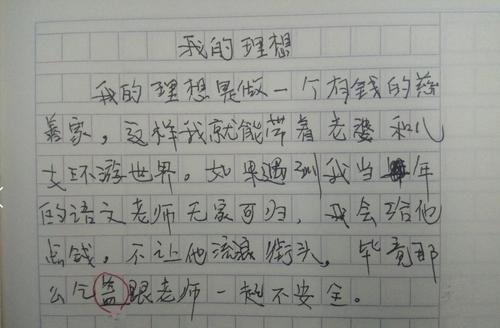 我的理想
我的理想是做一个有钱的慈
善家，这样我就能带着老婆和儿
女环游世界。如果遇到我当年
的语文老师无家可归，我会给他
点钱，不让他流浪街头，毕竟那
么气益跟老师一起不安全。